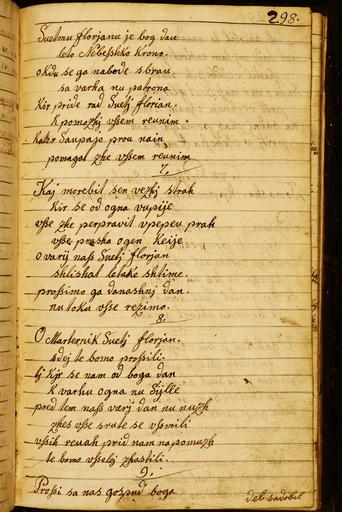 298.
Suetmu florjanu je bog dau
leto Nebeshko krono.
okdu se ga nabode s brau
sa varha nu patrona
kir pride rad Suetj florian.
k pomozhj vssem reunim.
kater saupajo prou nain
pomagat zhe vssem reunim
7.
Kaj morebit sen vezhj strah
kir se od ogna vupije
vsse zhe perpravit vpepeu prah
vsse praska ogen keije
o varij nass Suetj florjan
shlishat letake shtime.
prossimo ga danashnj dan.
nutoku vsse rezimo.
8.
O Marternik Suetj florjan.
sdej te bomo prossili.
tj kjr se nam od boga dan
k varhu ogna nu Sijlle
pred tem nass varij dan nu nuzh
zhes vsse srate se vsmili
vssih reuah prid nam napomuzh
te bomo vsselej zhastili.
9.
Prossi sa nas gospud boga
deb sadobil